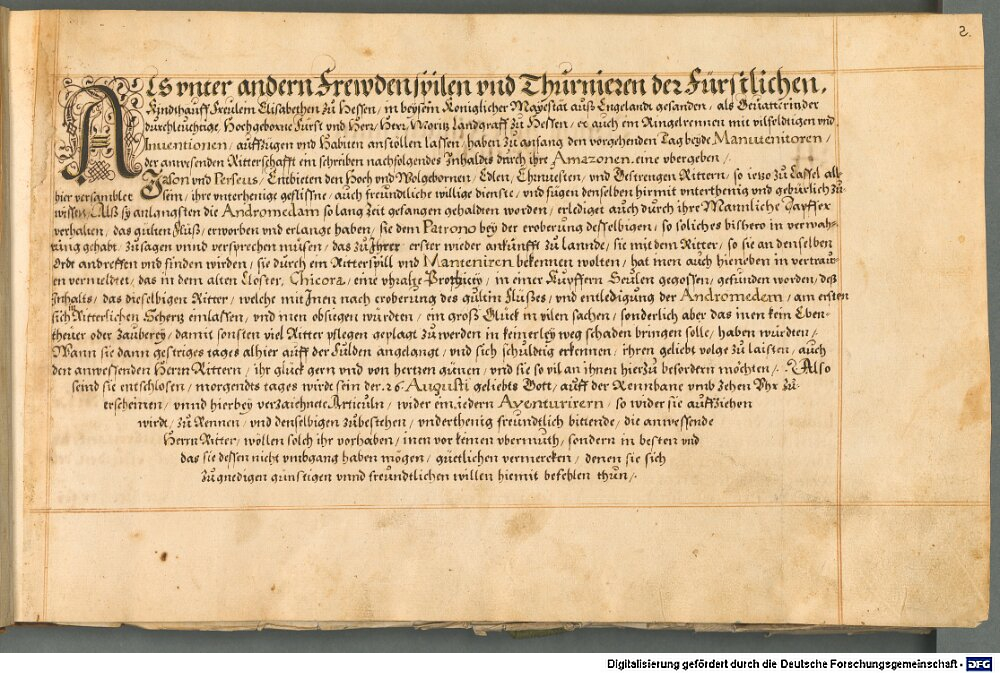 2.
Als vnter andern Frewdenspilen vnd Thurnieren der Fürstlichen.
Kyndthauff Freulein Elisabethen zu Hessen / in beysein Königlicher Mayestät auß Engelandt gesanden / als Geuatterin der
durchleuchtige / Hochgeborne Fürst vnd Herr / Herr Moritz Landgraff zu Hessen / ec auch ein Ringelrennen mit vilfoldtigen vnd
Inuentionen / auffzügen vnd Habiten anstollen lassen / haben zu anfang den vorgehenden Tag beyde Manutenitoren /
der anwesenden Ritterschafft ein schreiben nachfolgendes Inhaldts durch ihre Amazonen eine vbergeben /.
Jason vnd Perseus / Entbieten den Hoch vnd Wolgebornen / Edlen / Ehrnuesten / vnd Gestrengen Rittern / so ietzo zu Cassel all-
hier versamblet sein / ihre vnterthenige geflissne / auch freundtliche willige dienste / vnd fügen denselben hirmit vnterthenig vnd gebürlich zu
wissen / Alß sy anlangsten die Andromedam so lang Zeit gefangen gehaldten worden / erlediget auch durch ihre Mannliche Dapffer
verhalten / das gülten Flüß / erworben vnd erlangt haben / sie dem Patrono bey der eroberung desselbigen / so soliches bishero in verwah-
rung gehabt / zusagen vnnd versprechen müsen / das zu Ihrer erster wieder ankunfft zu lannde / sie mit dem Ritter / so sie an denselben
Ordt andreffen vnd finden wirden / sie durch ein Ritterspill vnd Manteniren bekennen wolten / hat men auch hieneben in vertrau-
en vermeldet / das in dem alten Closter / Chicora / eine vhralte Prophicey / in einer Kupffern Seulen gegossen / gefunden worden / deß
Inhalts / das dieselbigen Ritter / welche mit Inen nach eroberung des gültin Flüßes / vnd entledigung der Andromedem / am ersten
sich in Ritterlichen Schertz einlassen / vnd inen obsigen würdten / ein groß Glück in vilen sachen / sonderlich aber das inen kein Eben-
theuer oder Zauberey / damit sonsten viel Ritter pflegen geplagt zu werden in keinerley weg schaden bringen solle / haben würdten /
Wann sie dann gestriges tages alhier auff der Fulden angelangt / vnd sich schuldtig erkennen / ihren geliebt volge zu laisten / auch
den anwessenden Herrn Rittern / ihr glück gern vnd von hertzen günen / vnd sie so vil an ihnen hierzu befördern möchten /. Also
seind sie entschlosen / morgendts tages wirdt sein der .26. Augusti geliebts Gott / auff der Rennbane vmb zehen Vhr zu
erscheinen / vnnd hierbey verzaichnete Articuln / wider ein iedern Aventurirern / so wider sie auffziehen
wirdt / zu Rennen / vnd denselbigen zubestehen / vnderthenig freundtlich bittende / die anwessende
Herrn Ritter / wöllen solch ihr vorhaben / inen vor keinen vbermuth / sondern in besten vnd
das sie dessen nicht vmbgang haben mögen / güettlichen vermercken / denen sie sich
zu gnedigen günstigen vnnd freundtlichen willen hiemit befehlen thun /.
Digitalisierung gefördert durch die Deutsche Forschungsgemeinschaft - DFG